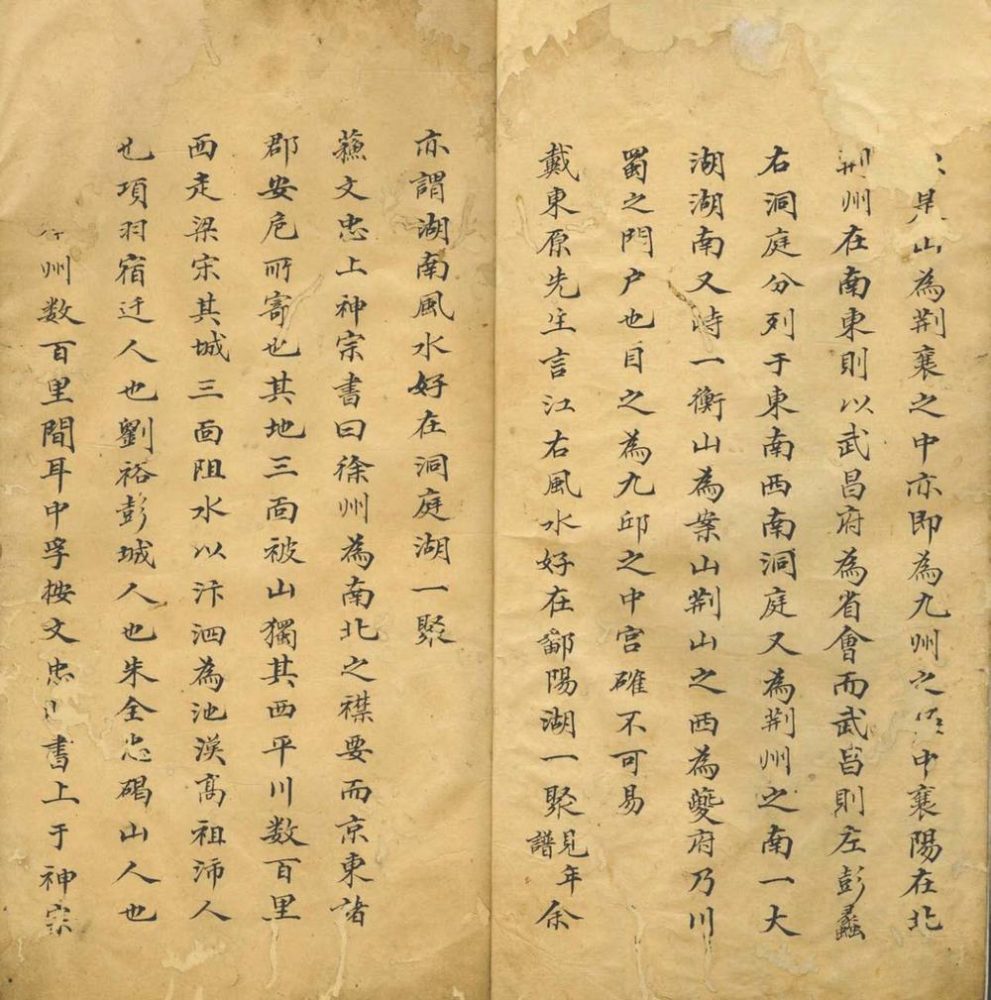 是山為荆襄之中亦即為九州之中襄陽在北
荆州在南東則以武昌府為省會而武昌則左彭蠡
右洞庭分列于東南西南洞庭又為荆州之南一大
湖湖南又峙一衡山為案山荆山之西為夔府乃川
蜀之門户也目之為九邱之中宮確不可易
戴東原先生言江右風水好在鄱陽湖一聚見年譜余
亦謂湖南風水好在洞庭湖一聚
蘓文忠上神宗書曰徐州為南北之襟要而京東諸
郡安危所寄也其地三面被山獨其西平川数百里
西走梁宋其城三面阻水以汴泗為池漢高祖沛人
也項羽宿迁人也劉裕彭城人也朱全忠碭山人也
州数百里間耳中孚按文忠書上于神宗